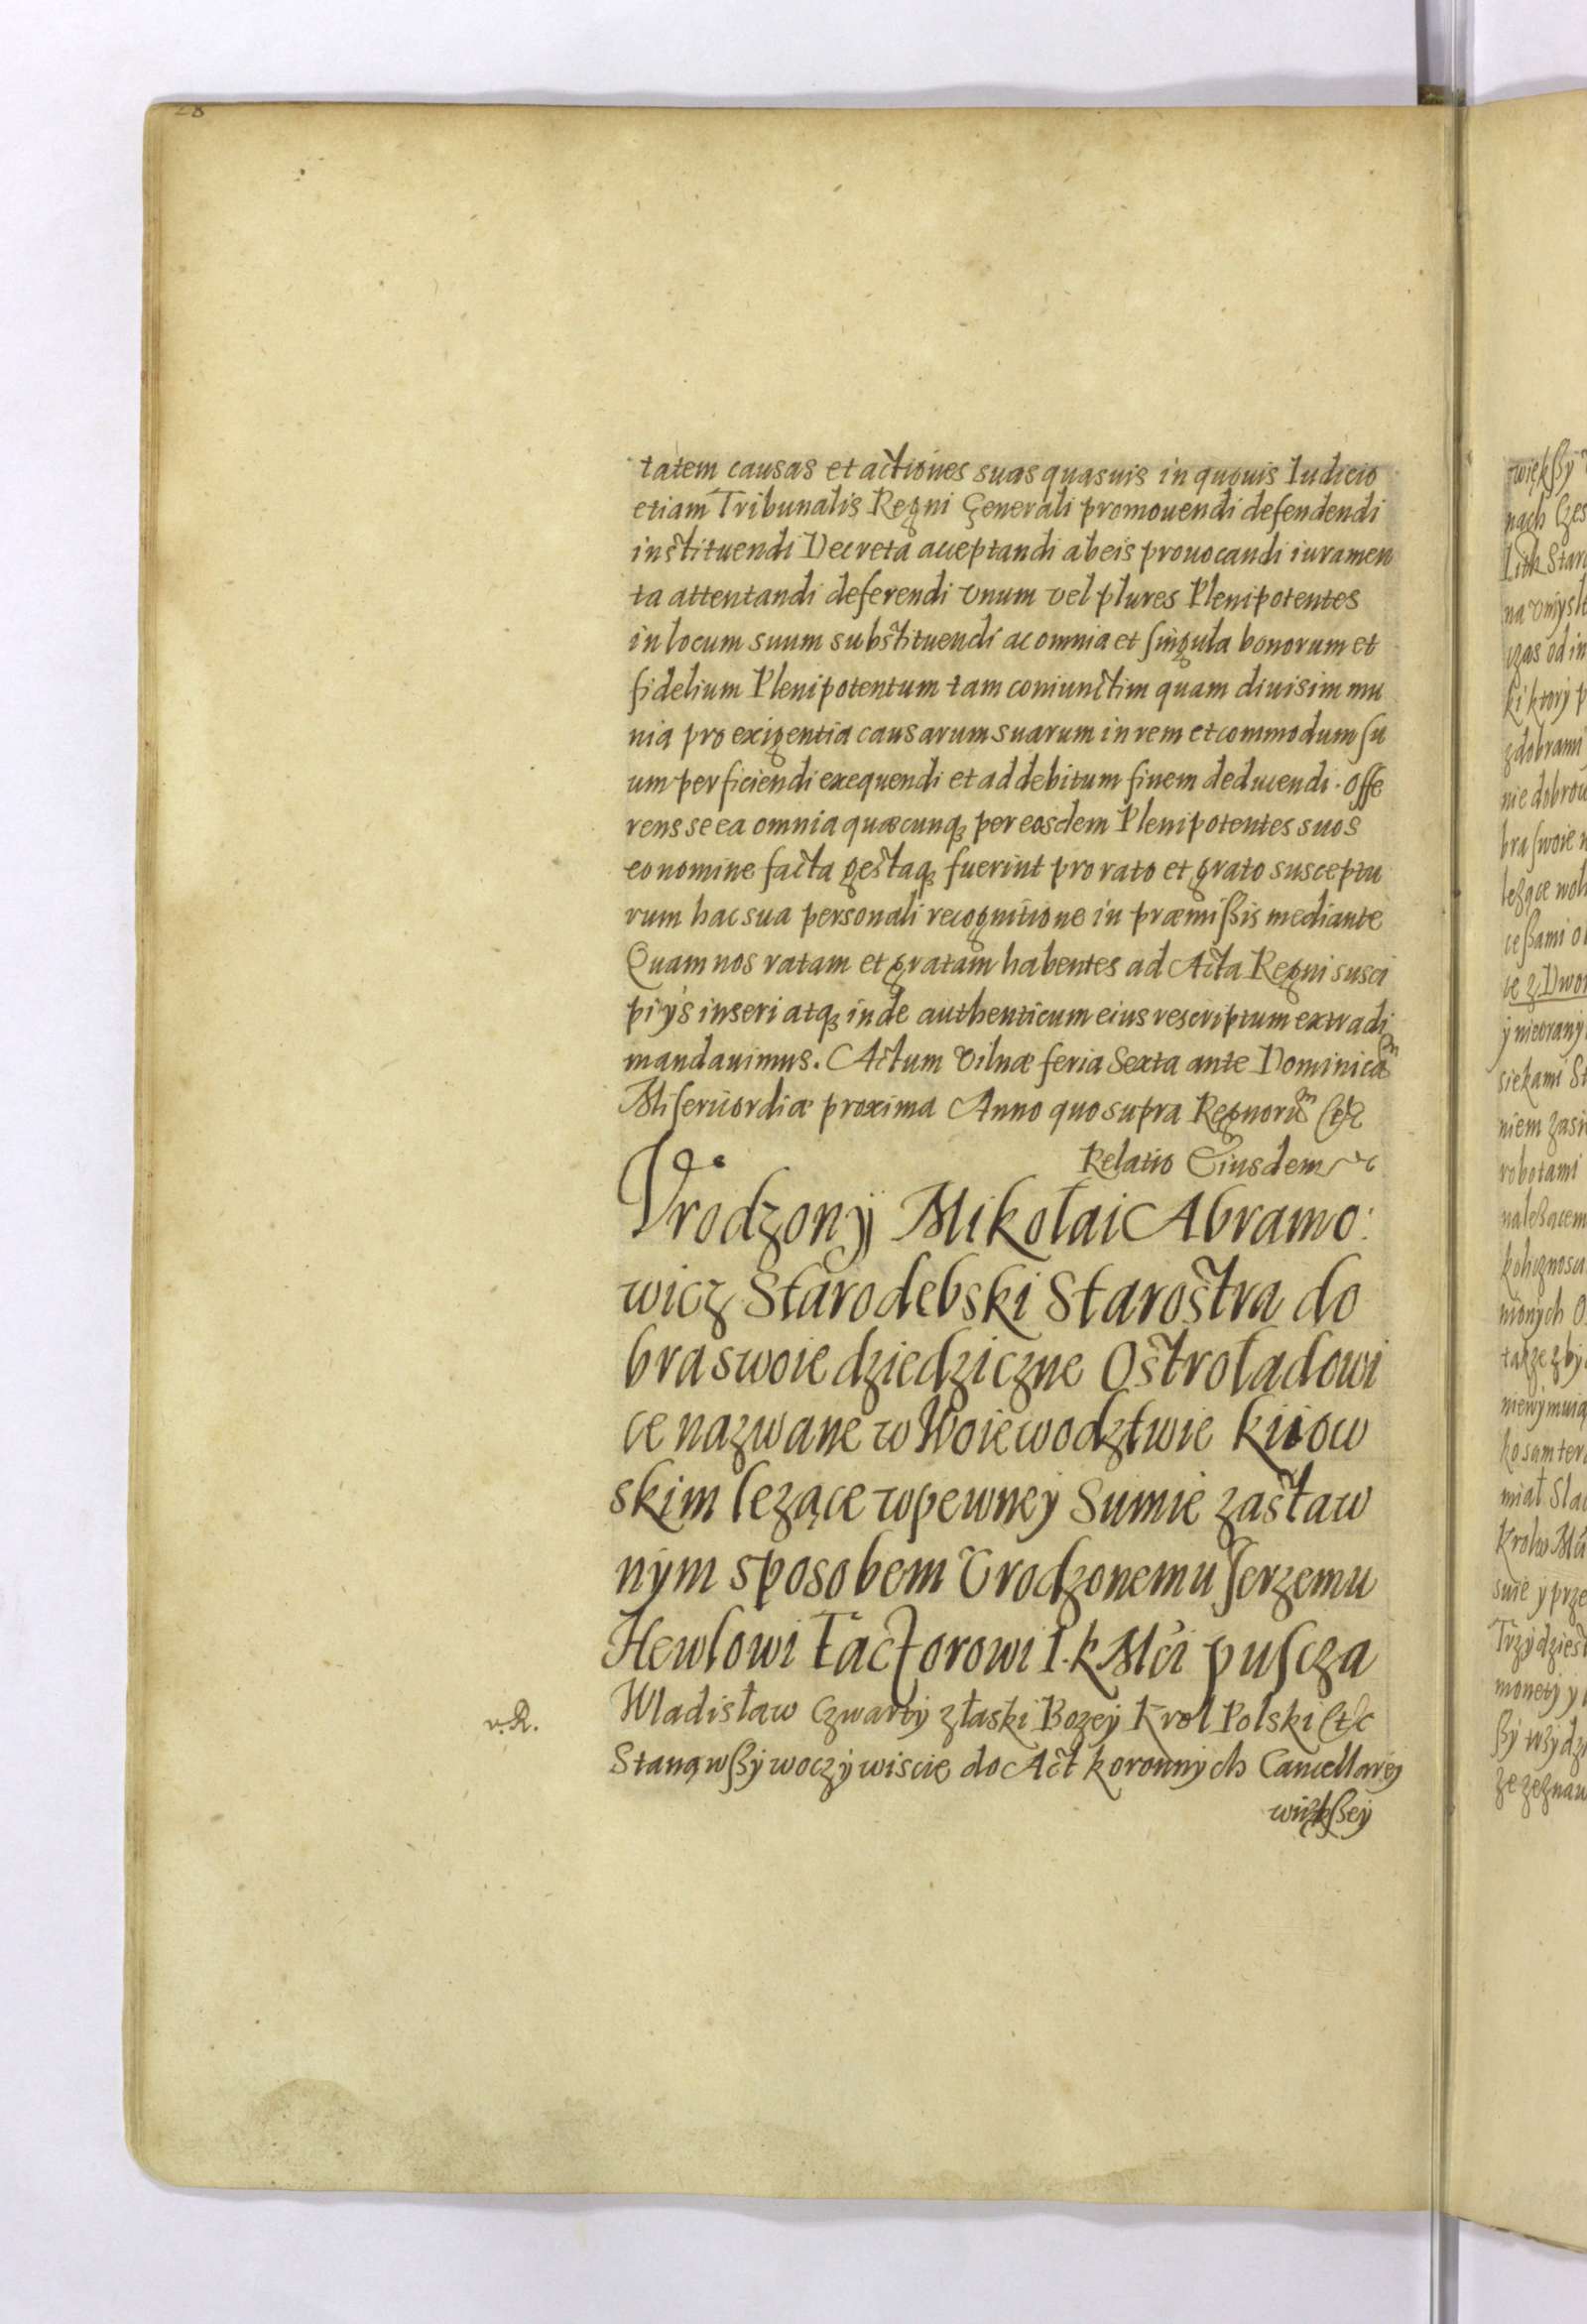 28
tatem causas et actiones suas quasuis in quouis Iudicio
etiam Tribunalis Regni Generali promouendi defendendi
instituendi Decreta acceptandi ab eis prouocandi iuramen
ta attentandi deferendi vnum vel plures Plenipotentes
in locum suum substituendi ac omnia et singula bonorum et
fidelium Plenipotentum tam coniunctim quam diuisim mu
nia pro exigentia causarum suarum in rem et commodum su
um perficiendi exequendi et ad debitum finem deducendi. Offe
rens se ea omnia quæcunq; per eosdem Plenipotentes suos
eo nomine facta gestaq; fuerint pro rato et grato susceptu
rum hac sua personali recognitione in præmißis mediante
Quam nos ratam et gratam habentes ad Acta Regni susci
pi ÿs inseri atq; inde authenticum eius rescriptum extradi
mandauimus. Actum Vilnæ feria Sexta ante Dominicam
Misericordiæ proxima Anno quo supra Regnorum etc
Relatio Eiusdem
Vrodzony Mikołai Abramo:
wicz Starodębski Starostra do
bra swoie dziedziczne Ostroładowi
ce nazwane w Woiewodztwie kiiow
skim lezące w pewney Sumie zastaw
nym sposobem Vrodzonemu Jerzemu
Hewlowi Factorowi I. K Mći puscza
v. R.
Wladisław Czwarty z łaski Bozey Krol Polski etc
Stanąwßy woczÿwiscie do Act koronnych Cancellariey
większey
większÿ
nach
Lith Star
na vmysl
czas od in
ki ktorÿ p
z dobrami
nie dobrow
bra swoie
lezące
ceßami
te z Dwor
siekami St
niem
robotami
takze
ko sam
miał
Krolw Mći
suie ÿ prze
Trzÿdziest
monetÿ ÿ